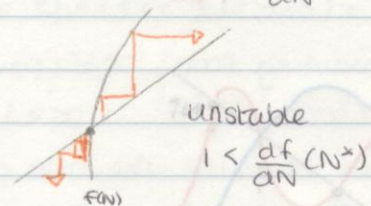 dN
unstable
1 < df/dN (N*)
f(N)